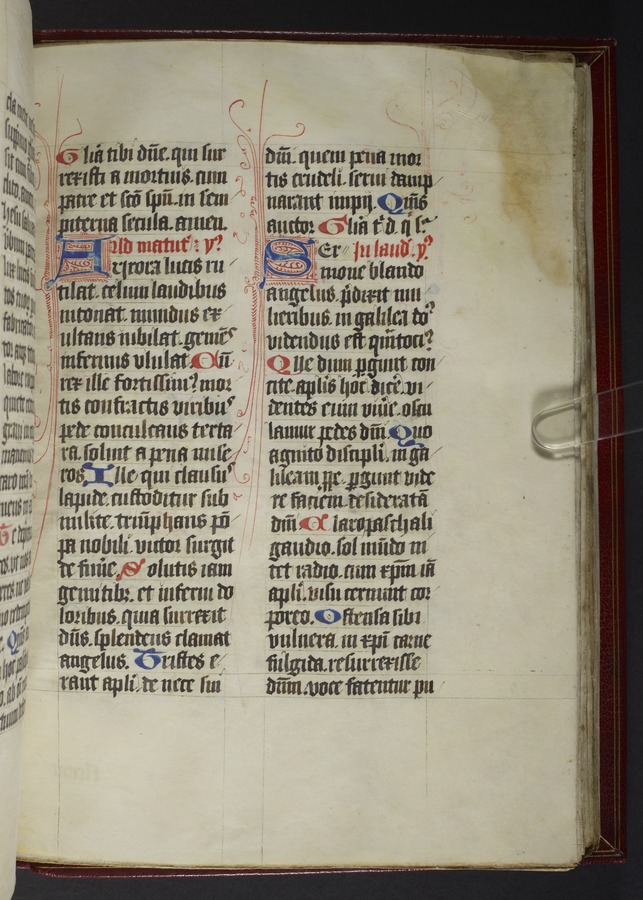 Glia tibi dñe. qui sur
rexisti a mortuis. cum
patre et sc̃o spũ. in sem
piterna secula. amen.
Ad matut̃ y̾
Aurora lucis ru
tilat. celum laudibus
intonat. mundus ex
ultans iubilat. gemẽs
infernus ululat. Cũ
rex ille fortissim̾ mor
tis confractis viribus
pede conculcans tarta
ra. soluit a pena mise
ros. Ille qui clausus
lapide. custoditur sub
milite. triũphans põ
pa nobili. victor surgit
de funẽ. Solutis iam
gemitib̃. et inferni do
loribus. quia surrexit
dñs. splendens clamat
angelus. Tristes e
rant apli. de nece sui
dñi. quem pena mor
tis crudeli. serui damp
narant impij. Qm̃s
auctor. Glia t̃ d. q̃ s̃
In laud. y̾
Sermone blando
angelus. p̃dixit mu
lieribus. in galilea do̾
videndus est q̃ntoci̾
Ille dum p̃gunt con
cite. aplis hoc dicẽ. vi
dentes eum viuẽ. oscu
lantur pedes dñi. Quo
agnito discipli. in ga
lileam p̃pe. p̃gunt vide
re faciem desideratã
dñi. Claro paschali
gaudio. sol mũdo ni
tet radio. cum xp̃m iã
apli. visu cernunt cor
poreo. Ostensa sibi
vulnera. in xp̃i carne
fulgida. resurrexisse
dñm. voce fatentur pu